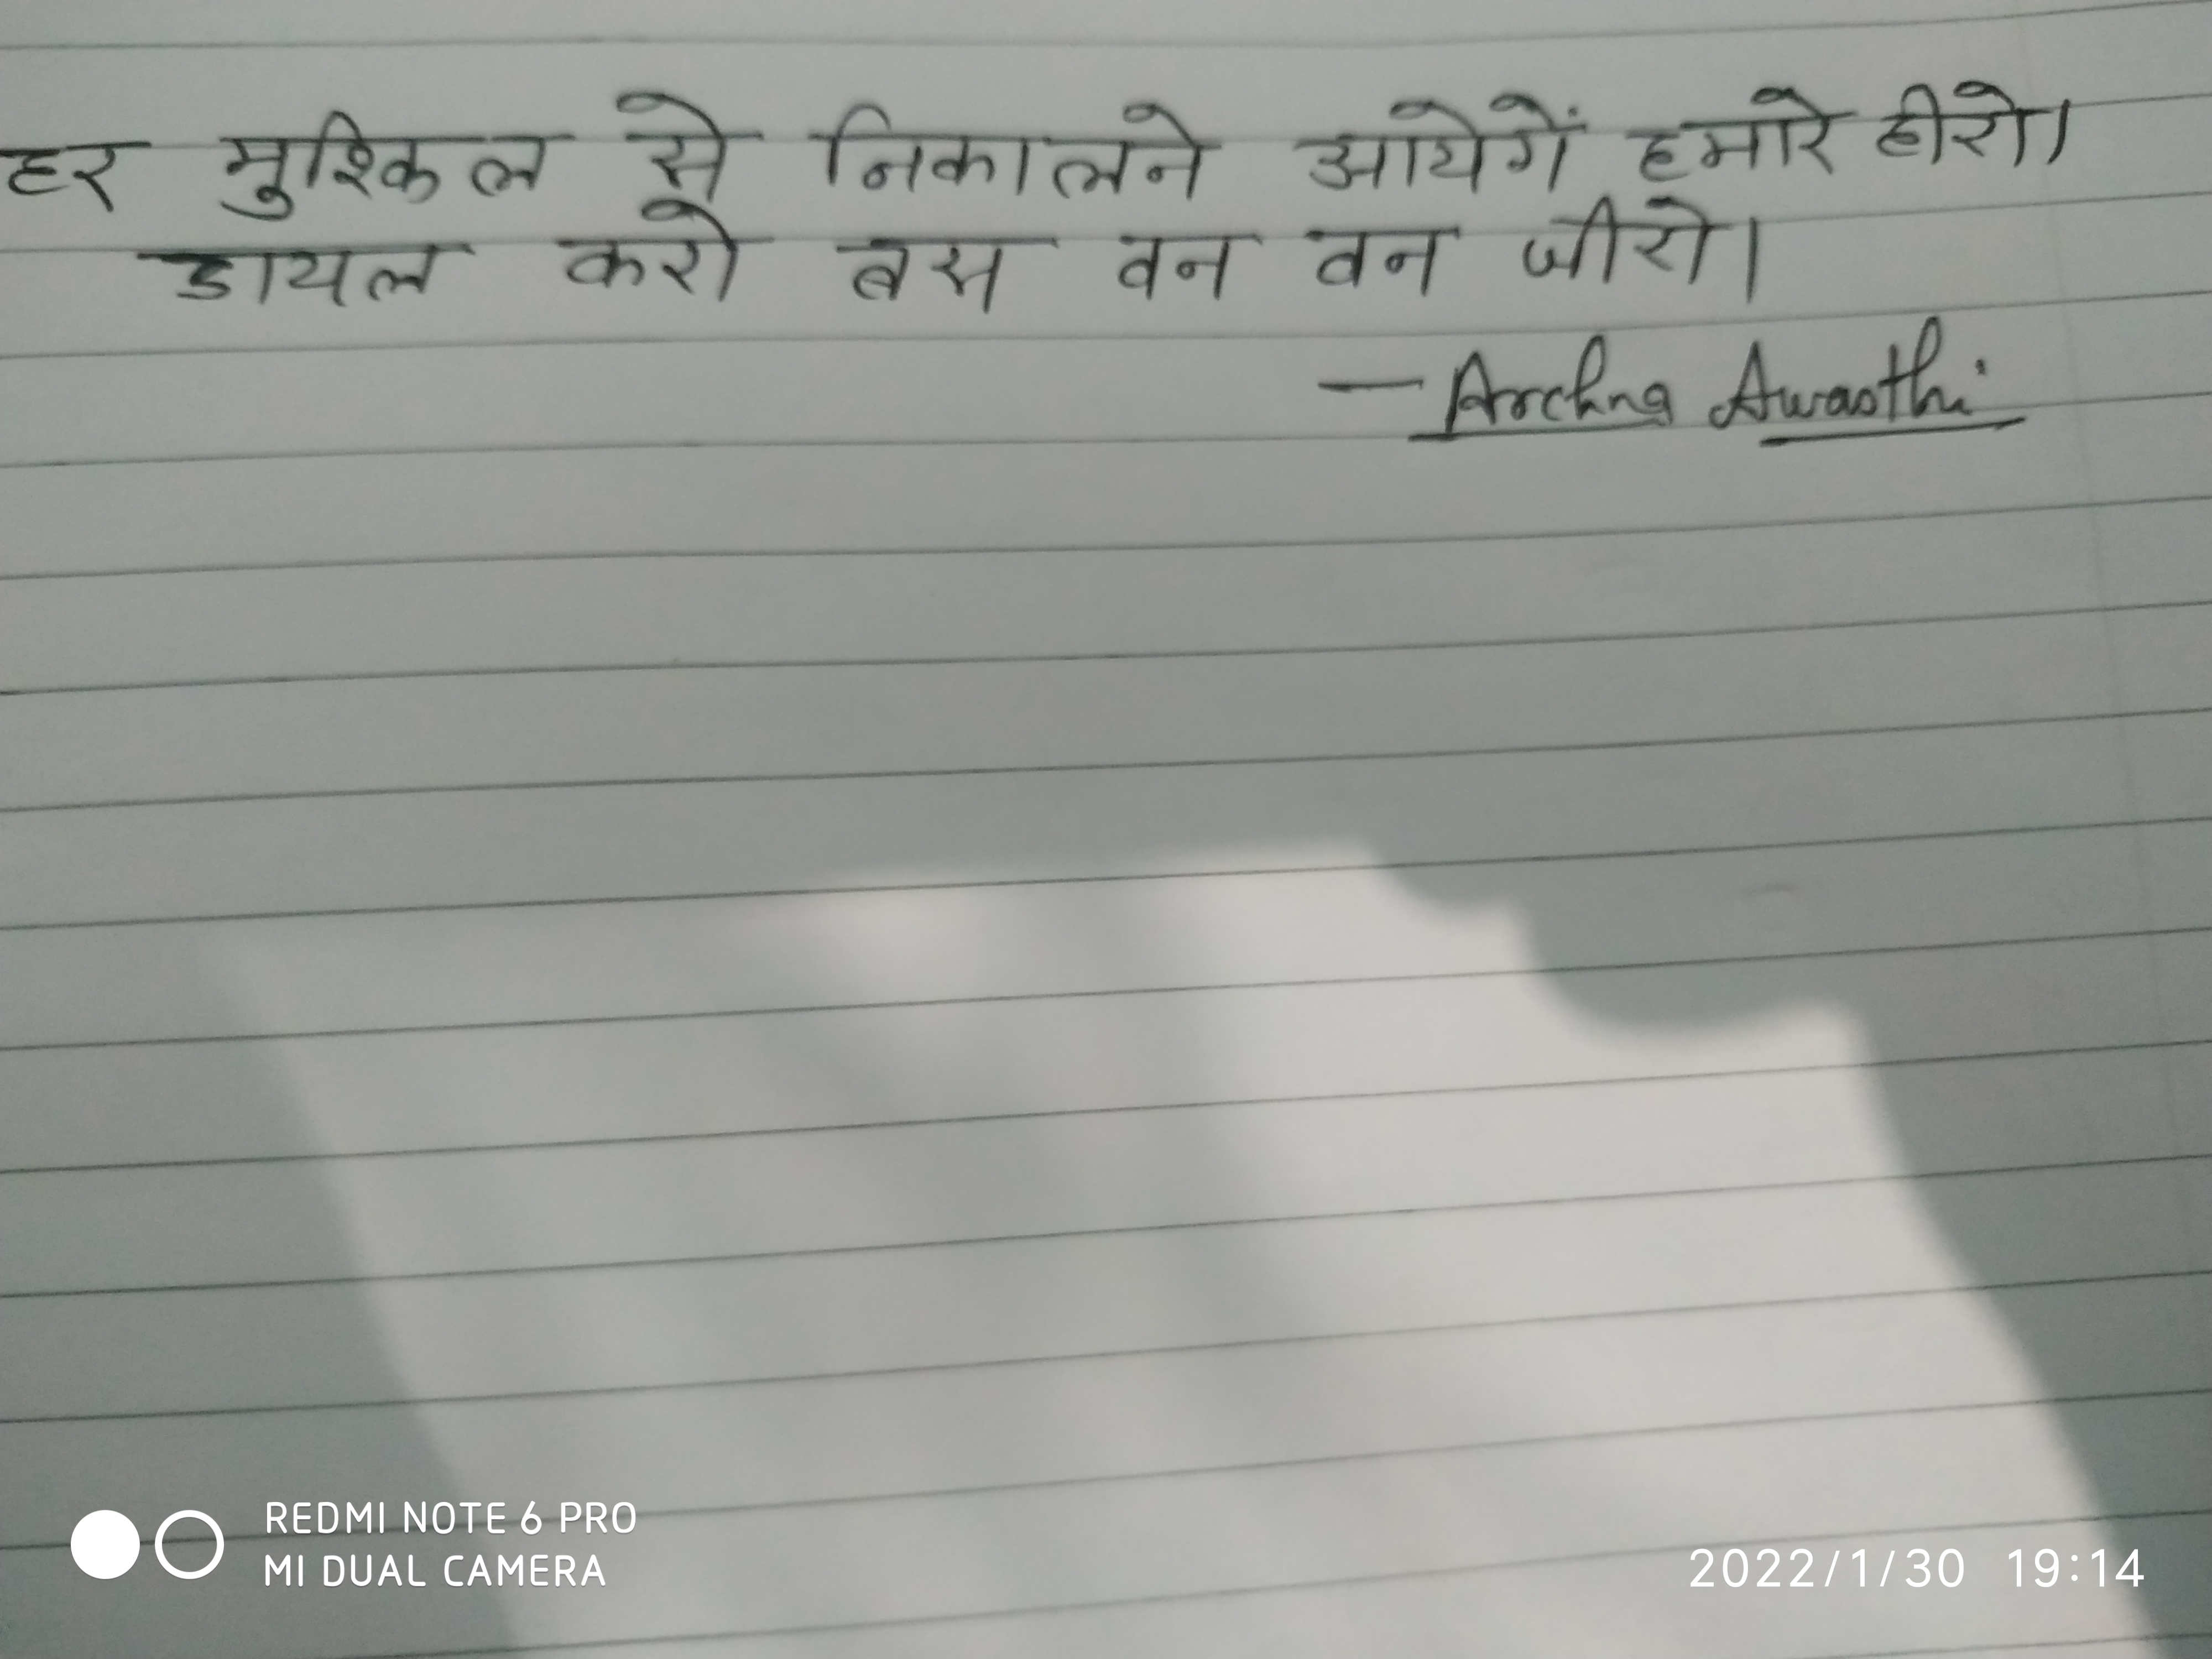 हर मुश्किल से निकालने आयेगें हमारे हीरो।
डायल करो बस वन वन जीरो।
— Archna Awasthi
REDMI NOTE 6 PRO
MI DUAL CAMERA
2022/1/30 19:14